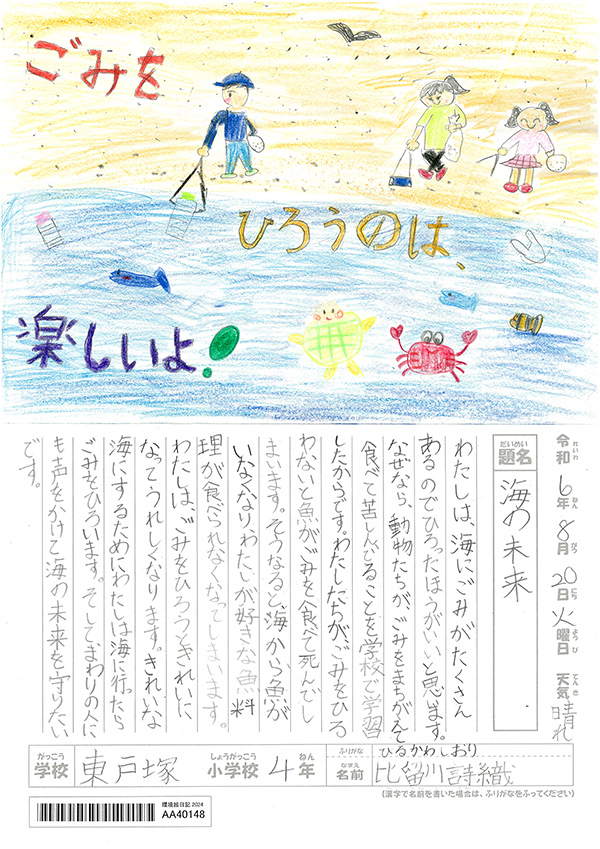 ごみを
ひろうのは、
楽しいよ!
令和6年8月20日火曜日 天気 晴れ
れいわ ねん がつ にち ようび てんき
だいめい
題名 海の未来
わたしは、海にごみがたくさん
あるのでひろったほうがいいと思います。
なぜなら、動物たちが、ごみをまちがえて
食べて苦しんでることを学校で学習
したからです。わたしたちが、ごみをひろ
わないと魚がごみを食べて死んでし
まいます。そうなると、海から魚が
いなくなり、わたしが好きな魚料
理が食べられなくなってしまいます。
わたしは、ごみをひろうときれいに
なってうれしくなります。きれいな
海にするためにわたしは海に行ったら
ごみをひろいます。そして、まわりの人に
も声をかけて海の未来を守りたい
です。
がっこう しょうがっこう ねん
学校 東戸塚 小学校 4年
ふりがな ひるかわしおり
なまえ
名前 比留川詩織
(漢字で名前を書いた場合は、ふりがなをふってください)
環境絵日記 2024
AA40148